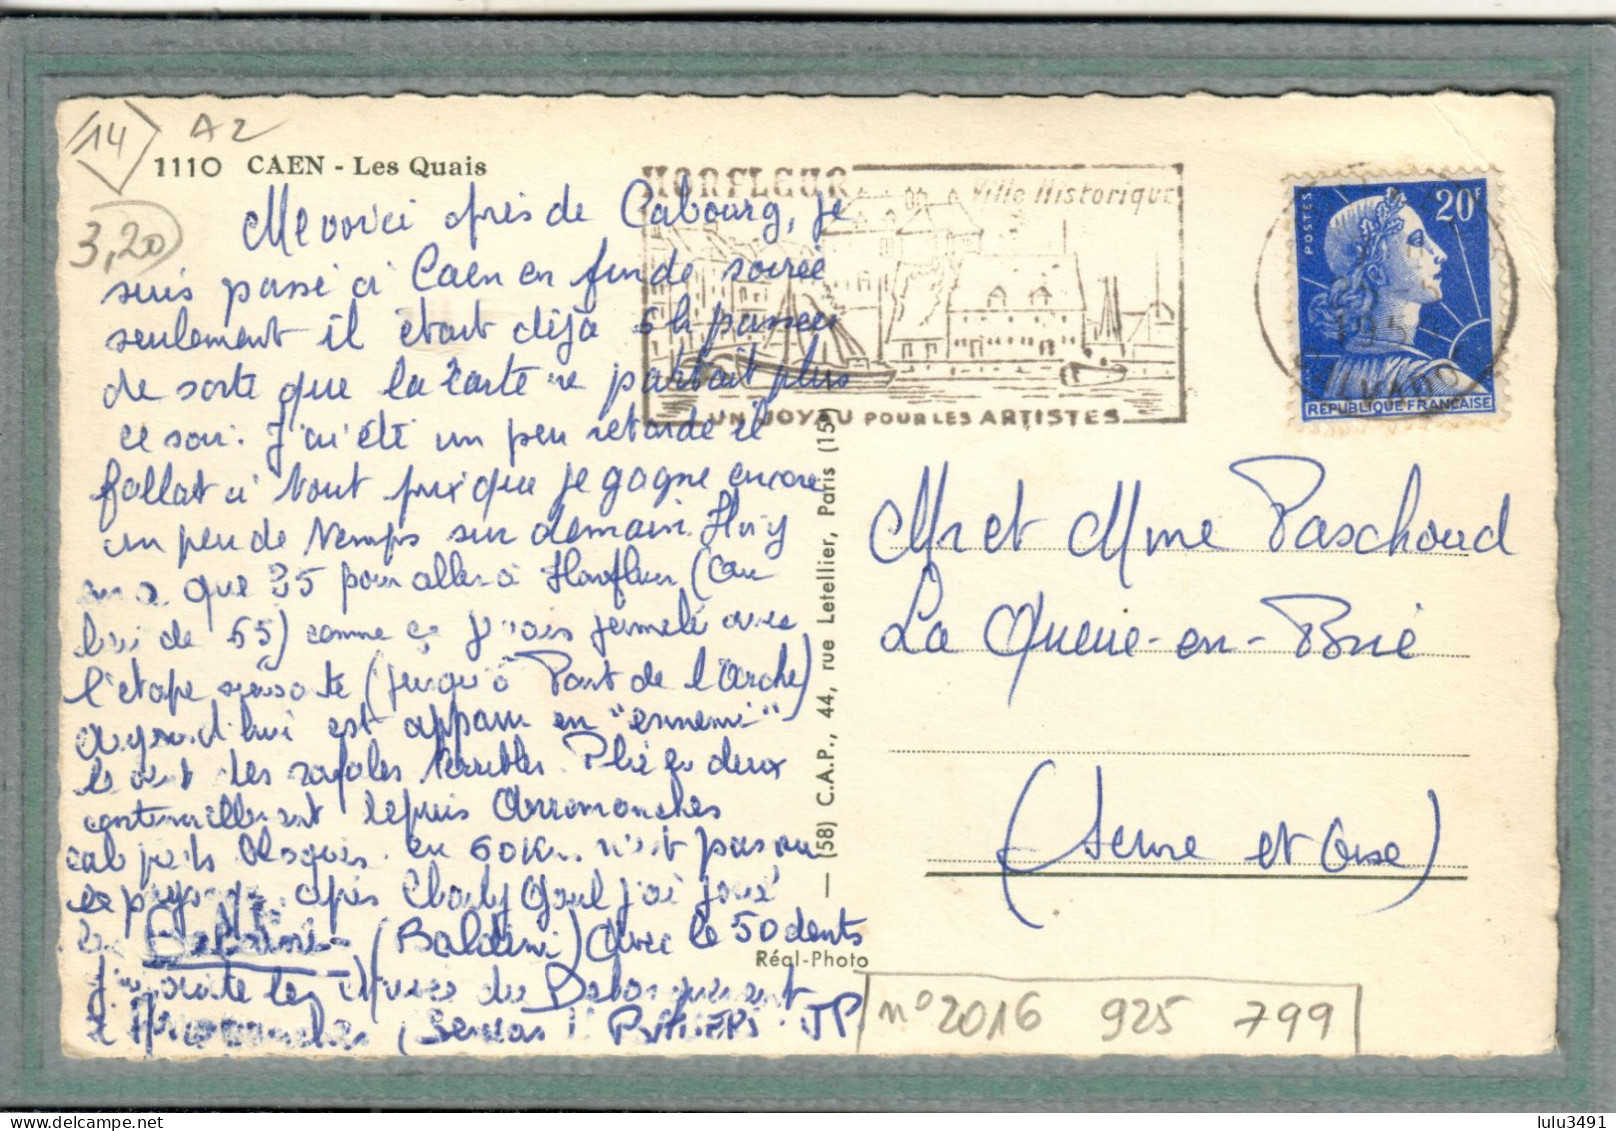 14
A2
3,20
1110 CAEN - Les Quais
HONFLEUR
Ville Historique
UN JOYAU POUR LES ARTISTES
POSTES
20F
REPUBLIQUE FRANÇAISE
CALVADOS
Me voici près de Cabourg, je
suis passé à Caen en fin de soirée
seulement il était déjà 6h passées
de sorte que la carte ne partait plus
ce soir. J'ai été un peu retardé il
fallait à tout prix que je gagne encore
un peu de temps sur demain. Il n'y
en a que 35 pour aller à Honfleur (au
lieu de 65) comme ça je vais jumeler avec
l'étape suivante (jusqu'à Pont de l'Arche)
aujourd'hui est apparu en "ennemi"
le vent des rafales terribles. Plié en deux
continuellement depuis Arromanches
en 60 Km
après Charly Gaul j'ai joué
(Baldini) avec le 50 dents
J.P.
— (58) C.A.P., 44, rue Letellier, Paris (15e)
Réal-Photo
Mr et Mme Paschoud
La Queue-en-Brie
(Seine et Oise)
n° 2016 925 799
lulu3491